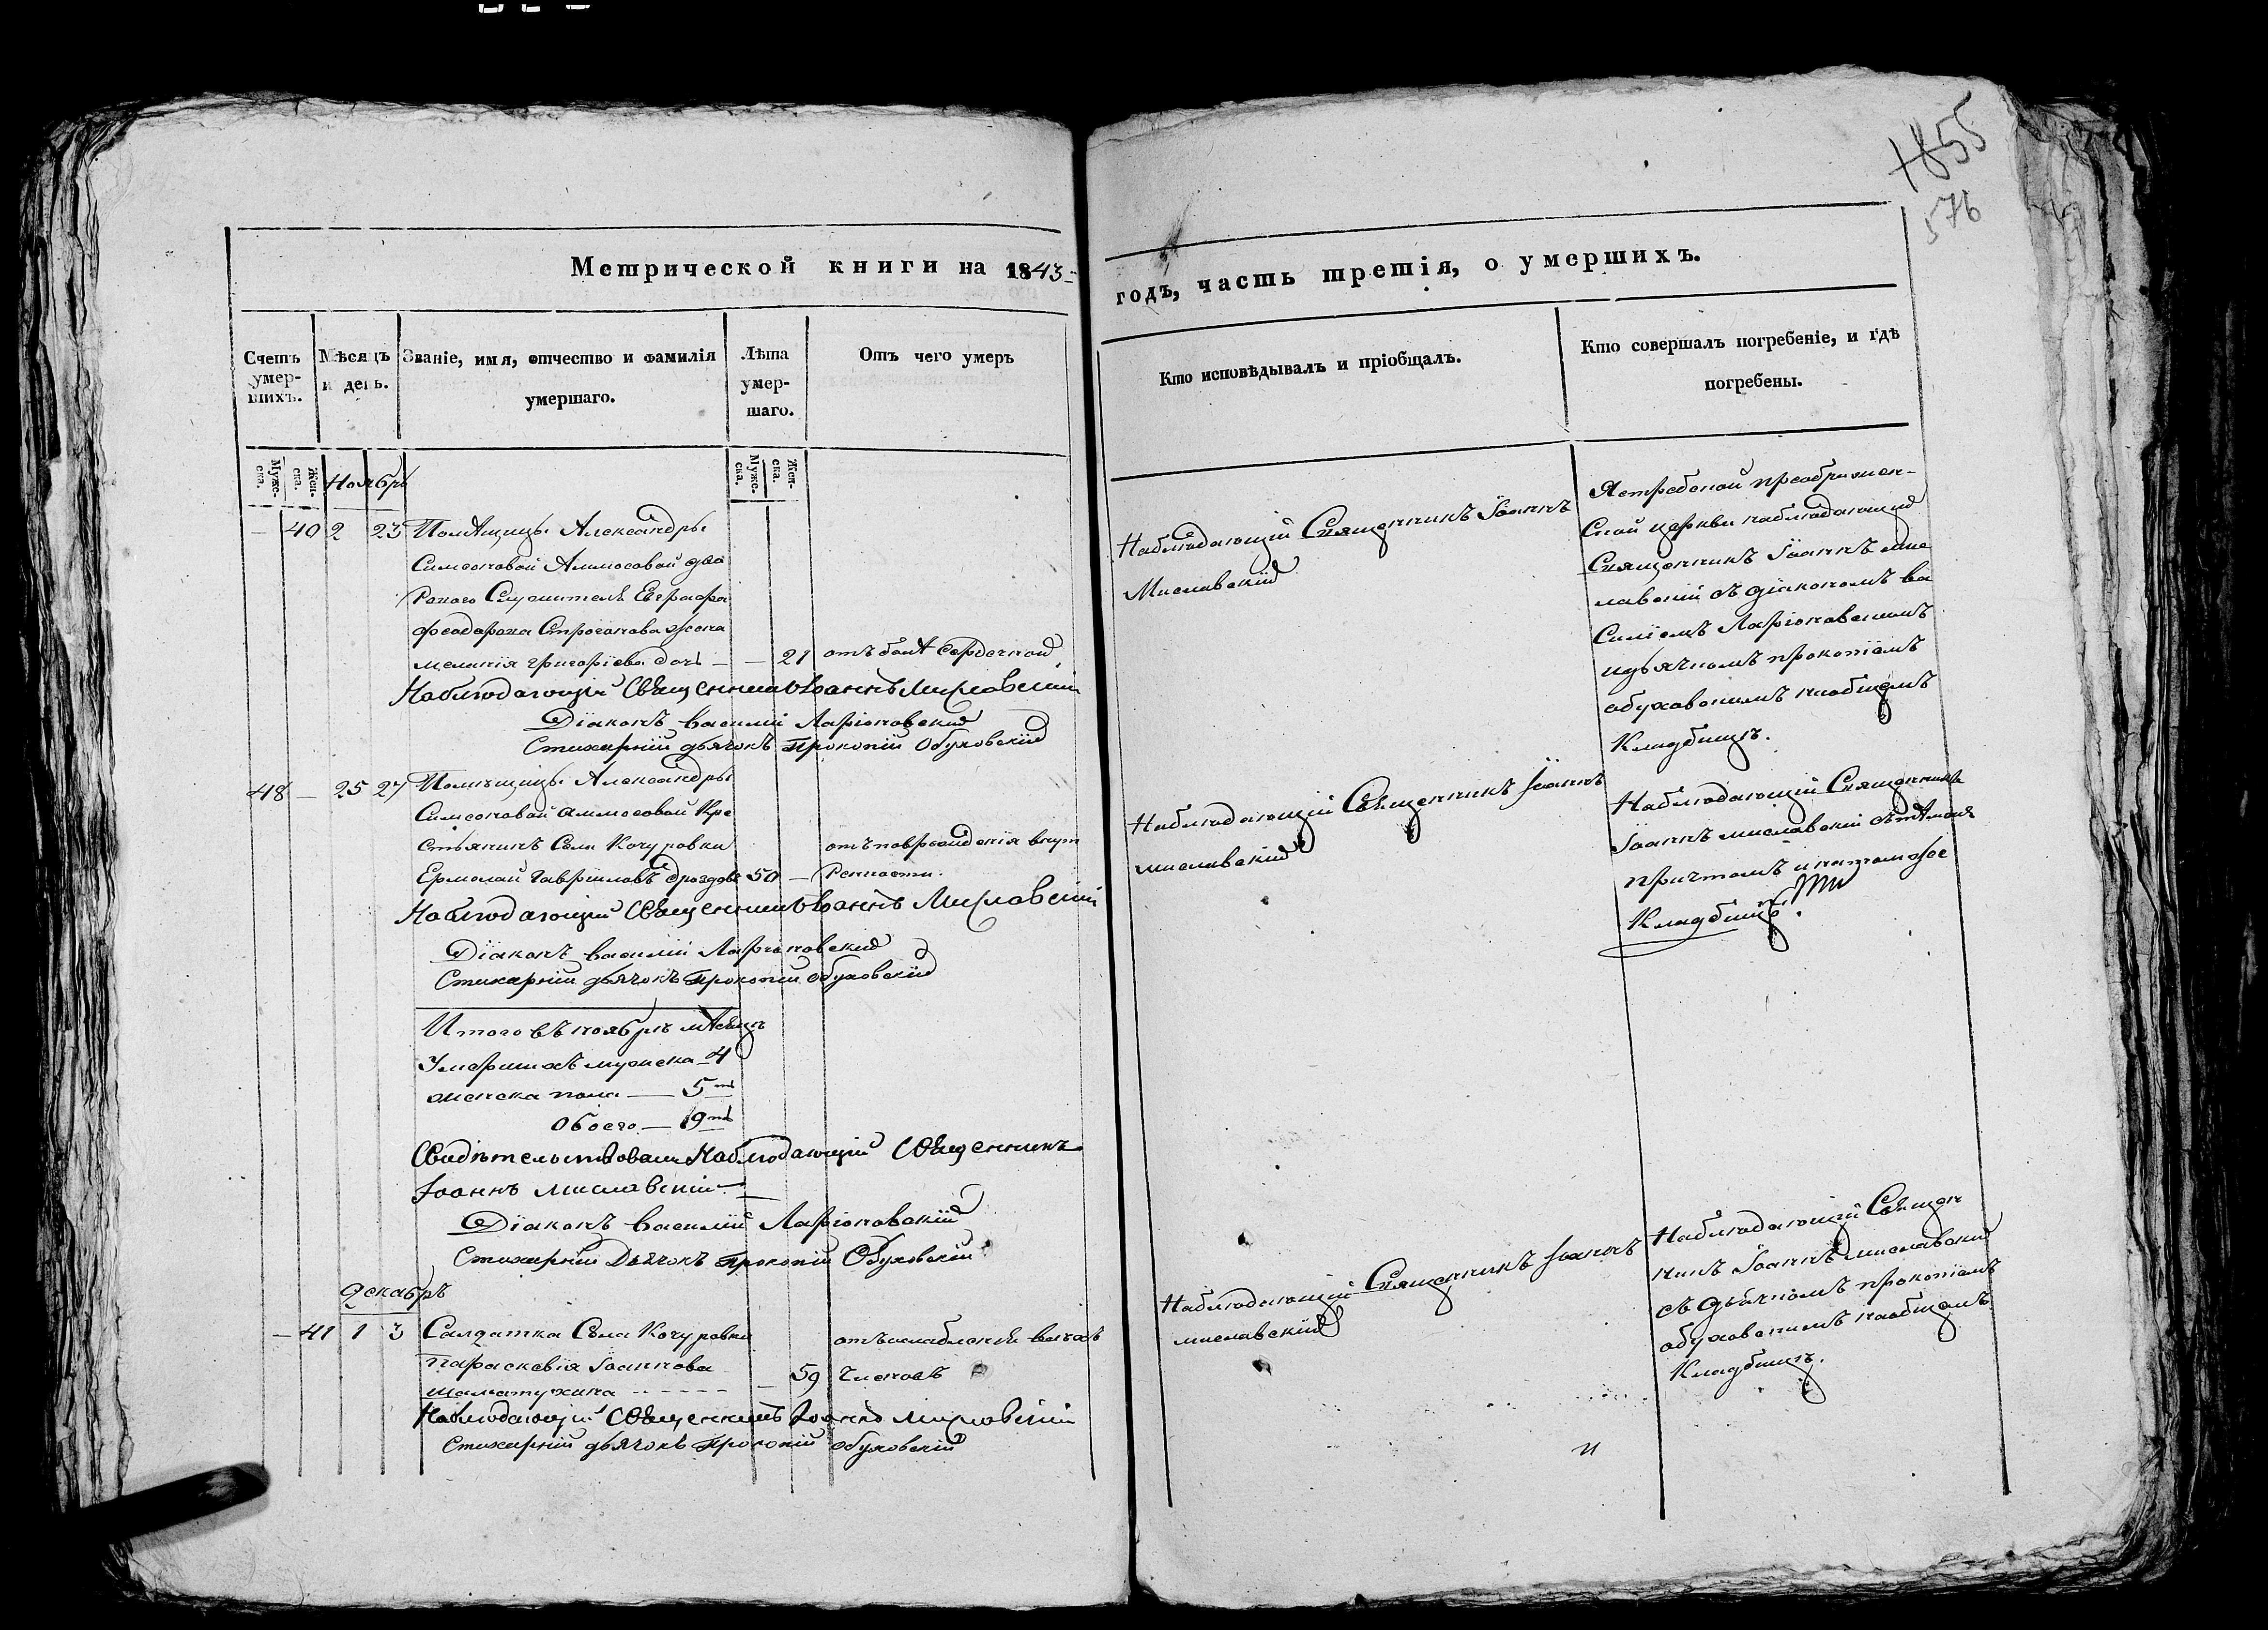 1855
576
Метрической книги на 1843
годъ, часть третія, о умершихъ.
Счетъ умер-шихъ.
Мѣсяцъ и день.
Званіе, имя, отчество и фамилія умершаго.
Лѣта умер-шаго.
Отъ чего умеръ
Кто исповѣдывалъ и пріобщалъ.
Кто совершалъ погребеніе, и гдѣ погребены.
Мужс-ска.
Жен-ска.
Мужс-ска.
Жен-ска.
Ноябрь
— 40 2 23 Помѣщицы Александры
Симеоновой Аммосовой дво
роваго Служителя Евграфа
Феодорова Строганова жена
меланія григоріева дочь — — 21 отъ болѣ сердечной
Наблюдающій Священникъ Іоаннъ Миславскій
Діаконъ Василій Ларіоновскій
Стихарный дьячокъ Прокопій Обуховскій
Наблюдающій Священникъ Іоаннъ
Миславскій
преображен-
ской церкви наблюдающій
Священникъ Іоаннъ мис
лавскій съ діакономъ ва
силіемъ Ларіоновскимъ
идьячкомъ прокопіемъ
обуховскимъ наобщемъ
Кладбищѣ.
48 — 25 27 Помѣщицы Александры
Симеоновой Аммосовой Кре
стьянинъ Села Кочуровки
Ермолай Гавриловъ дроздовъ 50 —
отъ поврежденія внут
ренности.
Наблюдающій Священникъ Іоаннъ Миславскій
Діаконъ Василій Ларіоновскій
Стихарный дьячокъ Прокопій Обуховскій
Наблюдающій Священникъ Іоаннъ
миславскій
Наблюдающій Священникъ
Іоаннъ миславскій съ тѣмже
причтомъ и натомже
Кладбищѣ.
Итого въ ноябрѣ мѣсяцѣ
Умершихъ мужска — 4
женска пола — 5
Обоего — 9
Свидѣтельствовали Наблюдающій Священникъ
Іоаннъ Миславскій
Діаконъ Василій Ларіоновскій
Стихарный Дьячокъ Прокопій Обуховскій
Декабрь
— 41 1 3 Салдатка Села Кочуровки
параскевія Іоаннова
шаматухина — 59
отъ ослабленія всѣхъ
членовъ
Наблюдающій Священникъ Іоаннъ Миславскій
Стихарный дьячокъ Прокопій Обуховскій
Наблюдающій Священникъ Іоаннъ
миславскій
Наблюдающій Священ
никъ Іоаннъ миславскій
съ дьячкомъ прокопіемъ
обуховскимъ наобщемъ
Кладбищѣ.